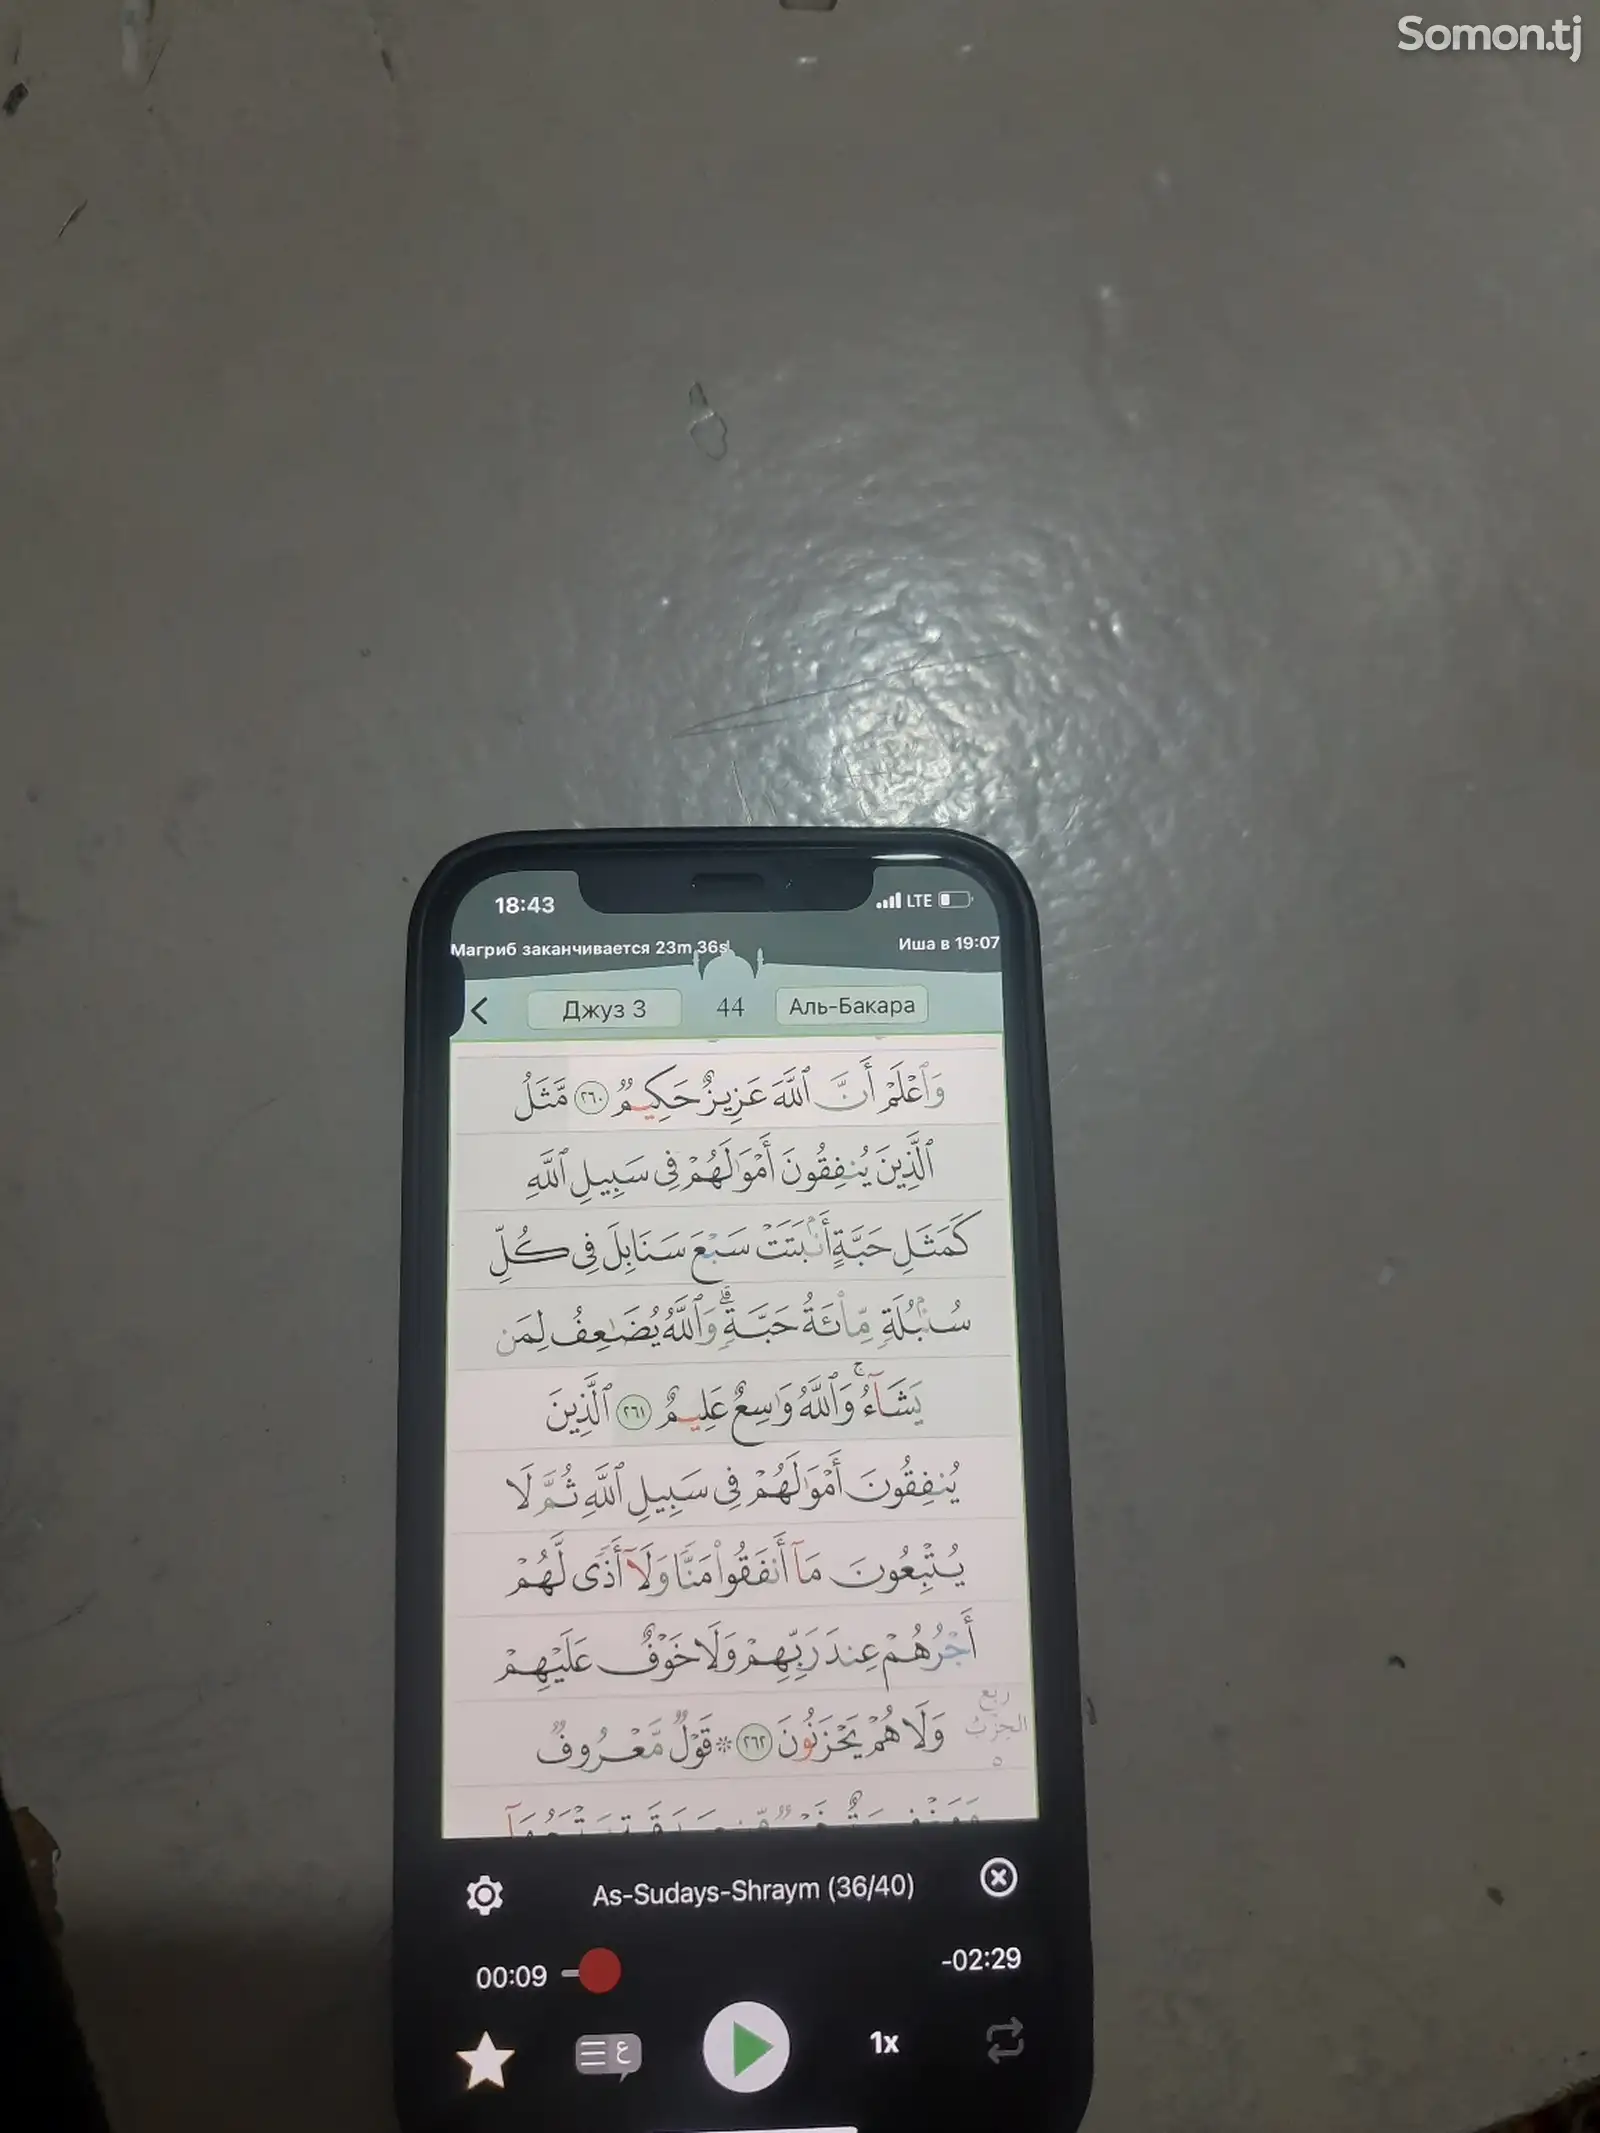 Somon.tj
18:43
LTE
Магриб заканчивается 23m 36s
Иша в 19:07
Джуз 3
44
Аль-Бакара
وَٱعْلَمْ أَنَّ ٱللَّهَ عَزِيزٌ حَكِيمٌ ٢٦٠ مَّثَلُ
ٱلَّذِينَ يُنفِقُونَ أَمْوَٰلَهُمْ فِى سَبِيلِ ٱللَّهِ
كَمَثَلِ حَبَّةٍ أَنۢبَتَتْ سَبْعَ سَنَابِلَ فِى كُلِّ
سُنۢبُلَةٍ مِّا۟ئَةُ حَبَّةٍ ۗ وَٱللَّهُ يُضَٰعِفُ لِمَن
يَشَآءُ ۚ وَٱللَّهُ وَٰسِعٌ عَلِيمٌ ٢٦١ ٱلَّذِينَ
يُنفِقُونَ أَمْوَٰلَهُمْ فِى سَبِيلِ ٱللَّهِ ثُمَّ لَا
يُتْبِعُونَ مَآ أَنفَقُوا۟ مَنًّا وَلَآ أَذًى لَّهُمْ
أَجْرُهُمْ عِندَ رَبِّهِمْ وَلَا خَوْفٌ عَلَيْهِمْ
ربع
الحزب
٥
وَلَا هُمْ يَحْزَنُونَ ٢٦٢ ۞ قَوْلٌ مَّعْرُوفٌ
As-Sudays-Shraym (36/40)
00:09
-02:29
ع
1x